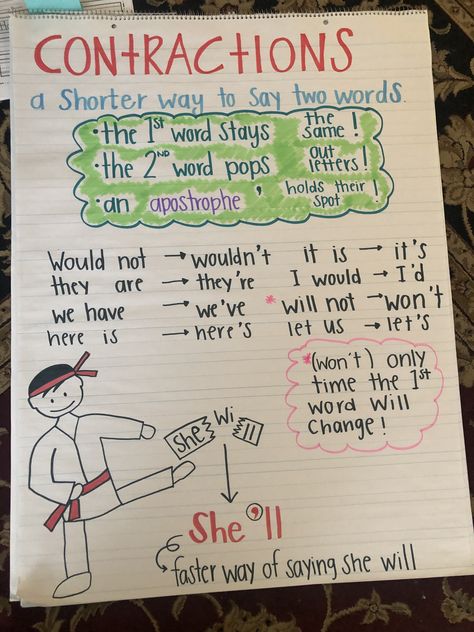 CONTRACTIONS
a Shorter way to Say two words.
• the 1st word stays the same!
• the 2ND word pops out letters!
• an apostrophe ' holds their spot!
Would not → wouldn't
they are → they're
we have → we've
here is → here's
it is → it's
I would → I'd
* will not → won't
let us → let's
*(won't) only
time the 1st
word will
change!
She Wi ll
She'll
faster way of saying she will